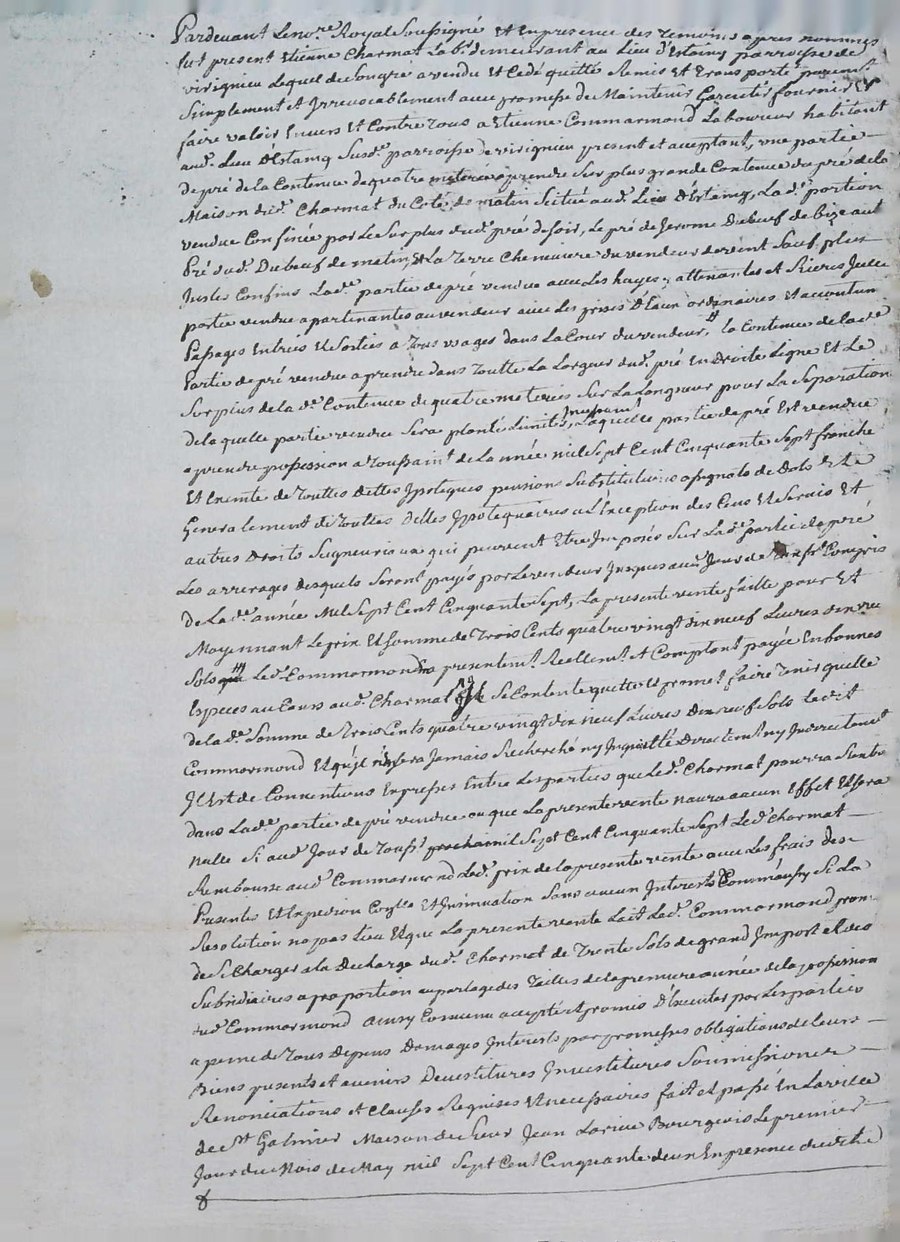 Pardevant Le no.re Royal Soussigné Et En presence des Temoins apres nommés
fut present Etienne Charmat Lab.r demeurant au Lieu d'Estaing parroisse de
virignieu Lequel de Son gré a vendu Et Cedé quitté Remis Et Transporté purem.t
Simplement et Irrevocablement avec promesse de Maintenir Garentir fournir Et
faire valoir Envers Et Contre Tous a Etienne Commarmond Laboureur habitant
aud. Lieu D'Estaing Susd.e parroisse de virignieu present et acceptant, une partie
de pré de la Contenue de quatre meterees a prendre Sur plus grande Contenue du pré de la
Maison dud. Charmat du Coté de matin Scitué aud. Lieu D'Estaing, La d.e portion
vendue Confinée par Le Surplus dud. pré de Soir, Le pré de Jerome Dubœuf de bize aut
Pré dud. Dubœuf de matin, Et La Terre Cheneviere du vendeur de vent Sauf plus
Justes Confins Lad.e partie de pré vendue avec Les hayes attenantes et
portée vendue apartenantes au vendeur avec Les prises D'Eaux ordinaires Et accoutum
Passages Entrées Et Sorties a Tous usages dans La Cour du vendeur, la Contenue de lad.e
Partie de pré vendue a prendre dans Toutte La Largeur dud. pré En Droite Ligne Et Le
Surplus de la d.e Contenue de quatre meterees Sur La Longueur pour La Separation
de la quelle partie vendue Sera planté Limites, Laquelle partie de pré Est vendue
a prendre possession a Toussaint de L'année mil Sept Cent Cinquante Sept franche
Et Exemte de Touttes Dettes Ypoteques pensions Substitutions
Generalement de Touttes Dettes Ypotequaires a L'Exception des Cens Et Servis Et
autres Droits Seigneuriaux qui peuvent Etre Imposés Sur Lad.e partie de pré
Les arrerages desquels Seront payés par Le vendeur Jusques aud. Jour de Compris
De La d.e année Mil Sept Cent Cinquante Sept, La presente vente faitte pour Et
Moyennant Le prix Et Somme de Trois Cents quatre vingt dix neuf Livres dix neuf
Sols Led. Commarmond a presentem.t Reellem.t et Comptant payée En bonnes
Especes au Cours aud. Charmat Se Contente quitte Et promet faire Tenir quitte
de la d.e Somme de Trois Cents quatre vingt dix neuf Livres Dix neuf Sols Ledit
Commarmond Et qu'il n'En Sera Jamais Recherché ny Inquietté Directem.t ny Indirectement
Il Est de Conventions Expresses Entre Les parties que Led. Charmat pourra Rentre
dans La d.e partie de pré vendue ou que La presente vente n'aura aucun Effet Et Sera
Nulle Si aud. Jour de Touss.t mil Sept Cent Cinquante Sept Led. Charmat
Rembourse aud. Commarmond Lad. prix de la presente vente avec Les frais des
Presentes Et Expedion Con.lle Et Insinuation Sans aucun Interets Comm'aussy Si La
Resolution n'a pas Lieu Et que La presente vente L'ait Lad. Commarmond prom
de Se Charger a la Decharge dud. Charmat de Trente Sols de grand Import et des
Subsidiaires a proportion au partage des Tailles de la premiere année de la possession
dud. Commarmond Ainsy Convenu accepté Et promis D'Executer par Les parties
a peine de Tous Depens Domages Interets par promesses obligations de Leurs
Biens presents et avenirs Devestitures Investitures Soumissions
Renonciations Et Clauses Requises Et necessaires fait et passé En La ville
de S.t Galmier Maison de Sieur Jean Larive Bourgeois Le premier
Jour du Mois de May mil Sept Cent Cinquante deux En presence dud.